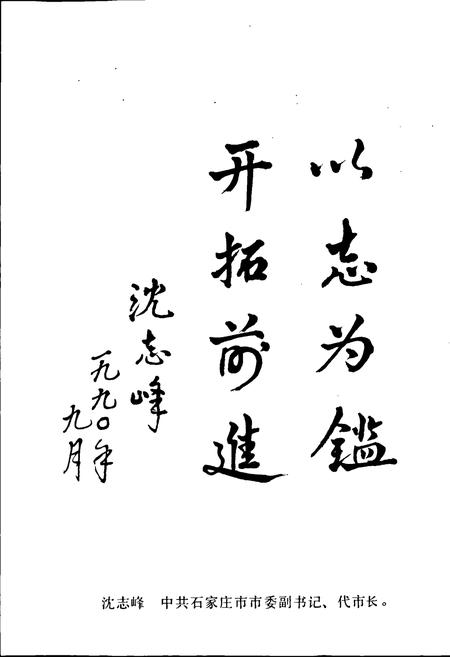 以志为鑑
开拓前進
沈志峰
一九九〇年
九月
沈志峰 中共石家庄市市委副书记、代市长。